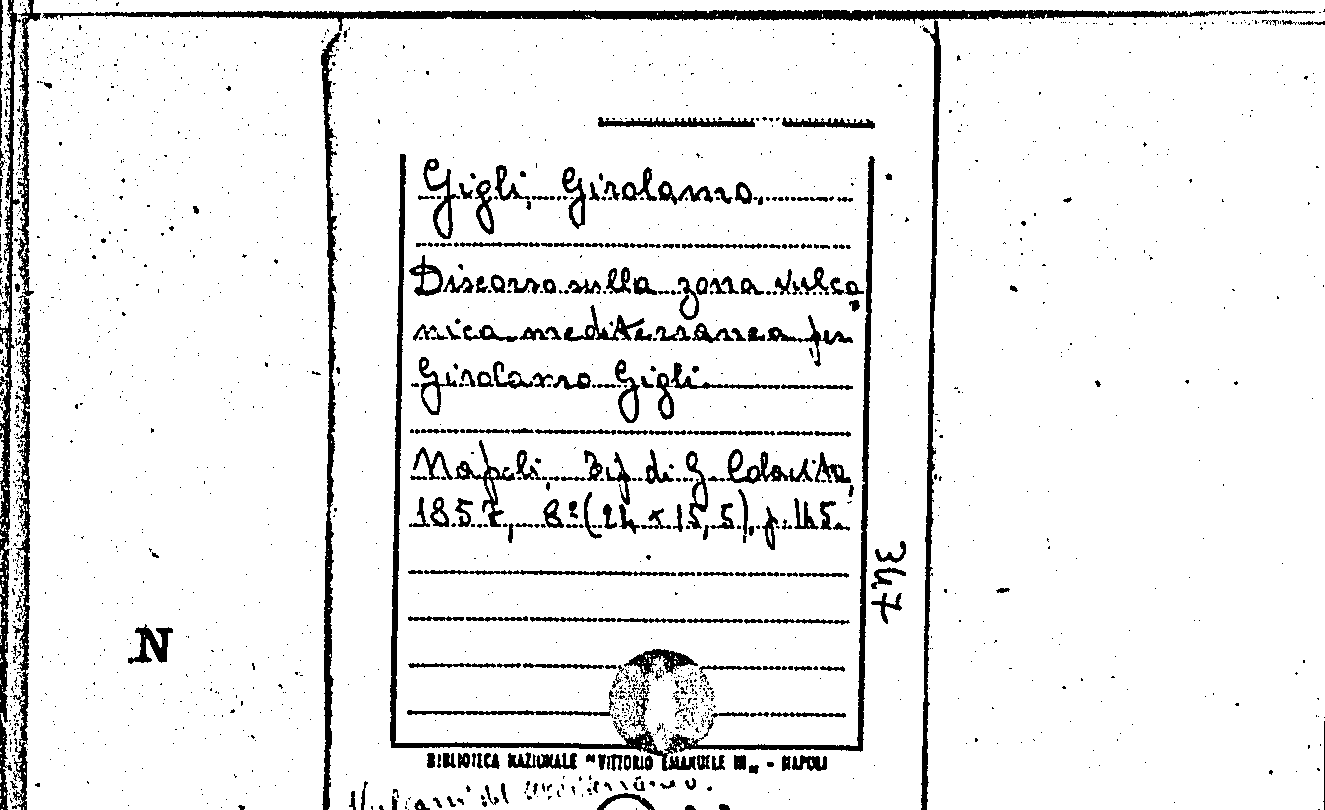 Gigli, Girolamo.
Discorso sulla zona vulca
nica mediterranea per
Girolamo Gigli.
Napoli, Tip di G. Colavita,
1857, 8º (24 x 15,5), p. 145.
347
N
BIBLIOTECA NAZIONALE "VITTORIO EMANUELE III" - NAPOLI
Vulcani del Mediterraneo.